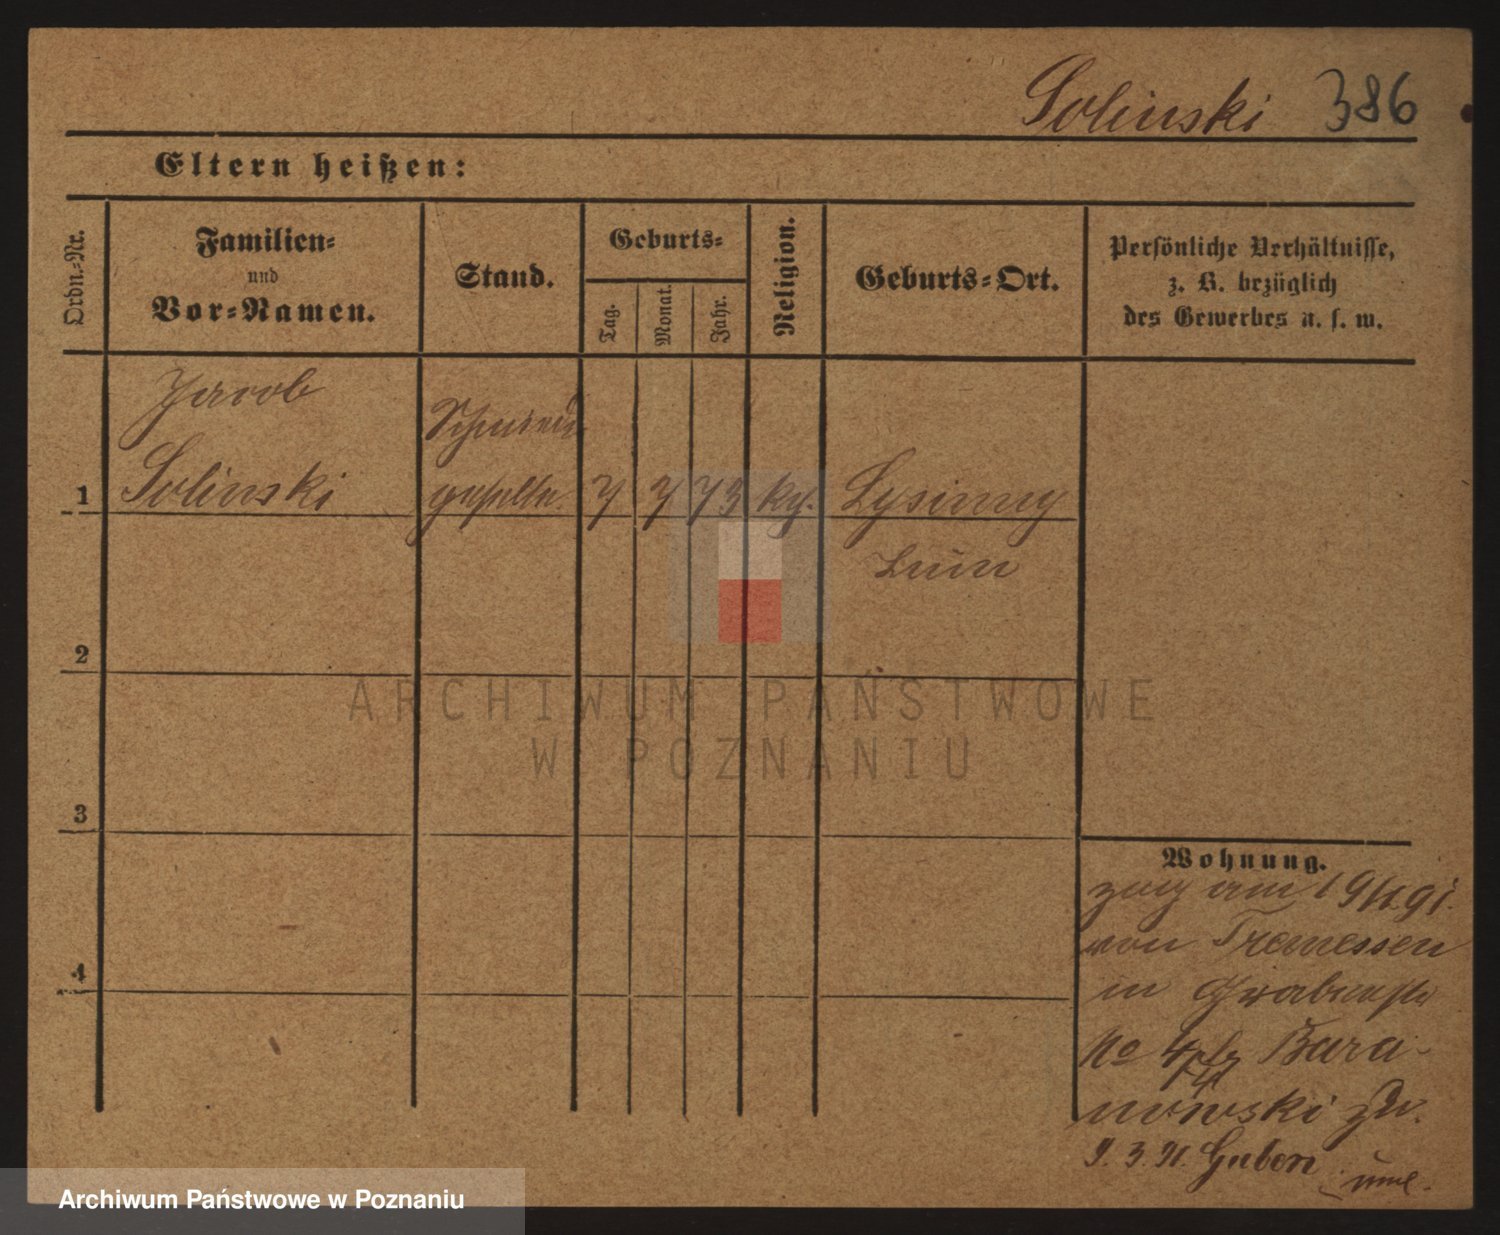 Solinski 386
Eltern heißen:
Ordn.-Nr.
Familien-
und
Vor-Namen.
Stand.
Geburts-
Tag.
Monat.
Jahr.
Religion.
Geburts-Ort.
Persönliche Verhältnisse,
z. B. bezüglich
des Gewerbes u. s. w.
Jacob
Schmiede
1 Solinski geselle 7 7 73 kg.
2
3
4
Wohnung.
zog am 19/1 91.
von Tremessen
in
No 4 Bara-
nowski zu.
9. 3. 91. Guben
ARCHIWUM PAŃSTWOWE
W POZNANIU
Archiwum Państwowe w Poznaniu